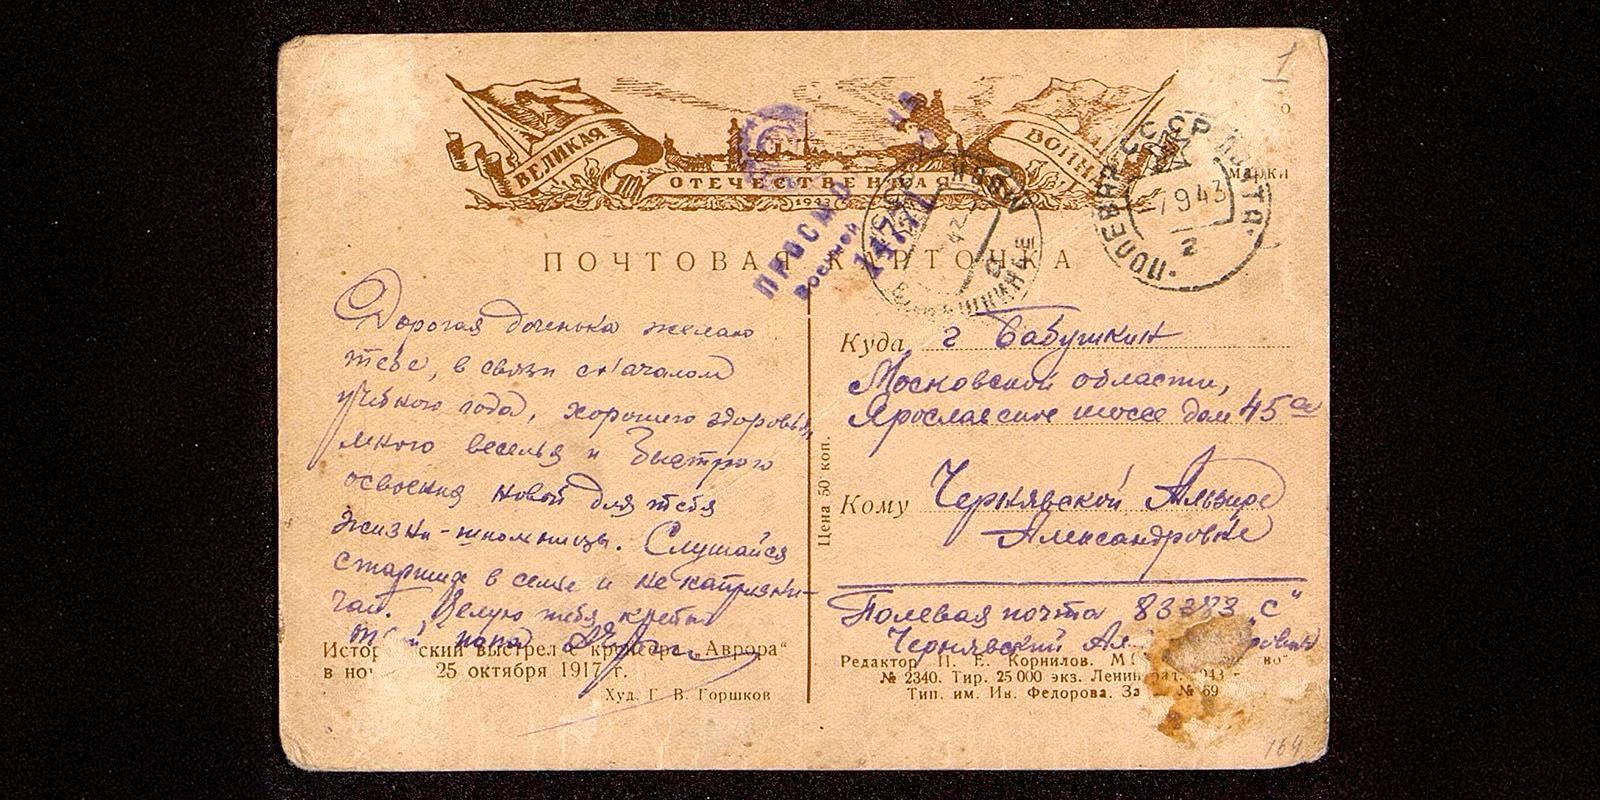 1
ВЕЛИКАЯ
ОТЕЧЕСТВЕННАЯ
ВОЙНА
1943
марки
СССР ПОЛЕВАЯ ПОЧТА
-7 9 43
2
ПРОСМ
Военной
14771
ПОЧТОВАЯ КАРТОЧКА
Дорогая доченька желаю
тебе, в связи с началом
учебного года, хорошего здоровья,
много веселья и быстрого
освоения новой для тебя
жизни-школьницы. Слушайся
старших в семье и не капризни-
чай. Целую тебя крепко
твой папа
Истор ский выстрел с крейсера „Аврора“
в но 25 октября 1917 г.
Худ. Г. В. Горшков
Цена 50 коп.
Куда г Бабушкин
Московской области,
Ярославское шоссе дом 45а
Кому Чернявской Альвире
Александровне
Полевая почта 83383 „С“
Чернявский Ал
Редактор П. Е. Корнилов.
№ 2340. Тир. 25 000 экз. Ленин 943
Тип. им. Ив. Федорова. За № 69
164